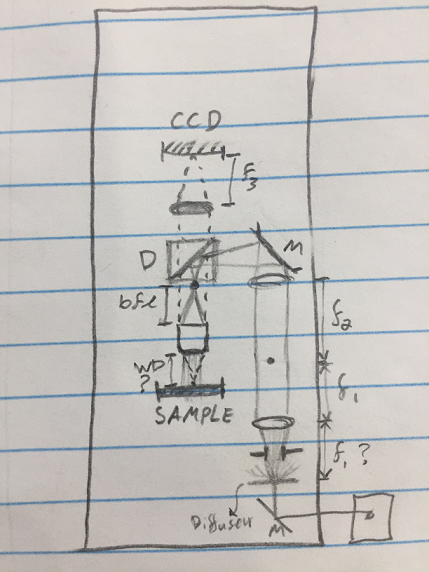 CCD
f3
D
M
bfl
f2
WD
?
f1
SAMPLE
f1 ?
Diffuser
M